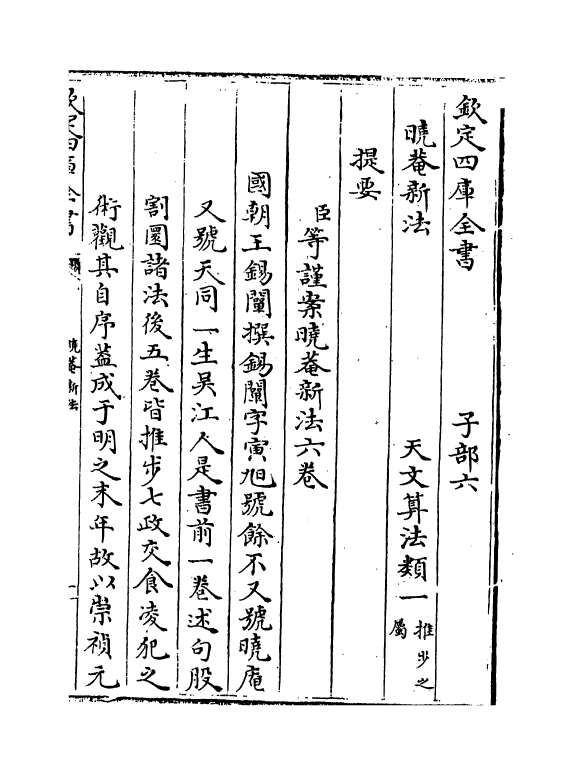 欽定四庫全書　子部六
曉菴新法　天文算法類一推步之屬
提要
臣等謹案曉菴新法六卷
國朝王錫闡撰錫闡字寅旭號餘不又號曉庵
又號天同一生吳江人是書前一卷述句股
割圜諸法後五卷皆推步七政交食凌犯之
術觀其自序蓋成于明之末年故以崇禎元
欽定四庫全書
曉菴新法
一